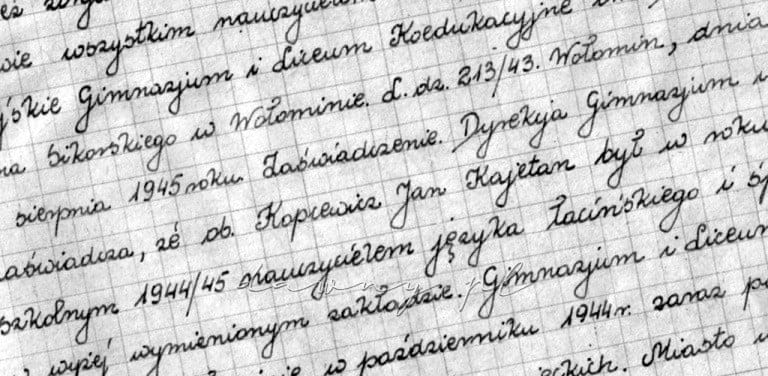 wszystkim
Gimnazjum i Liceum Koedukacyjne
Sikorskiego w Wołominie. L. dz. 213/43. Wołomin, dnia
sierpnia 1945 roku. Zaświadczenie. Dyrekcja Gimnazjum
że ob. Kopcewicz Jan Kajetan był w roku
szkolnym 1944/45 nauczycielem języka łacińskiego i
wyżej wymienionym zakładzie. Gimnazjum i Liceum
w październiku 1944 r. zaraz
Miasto